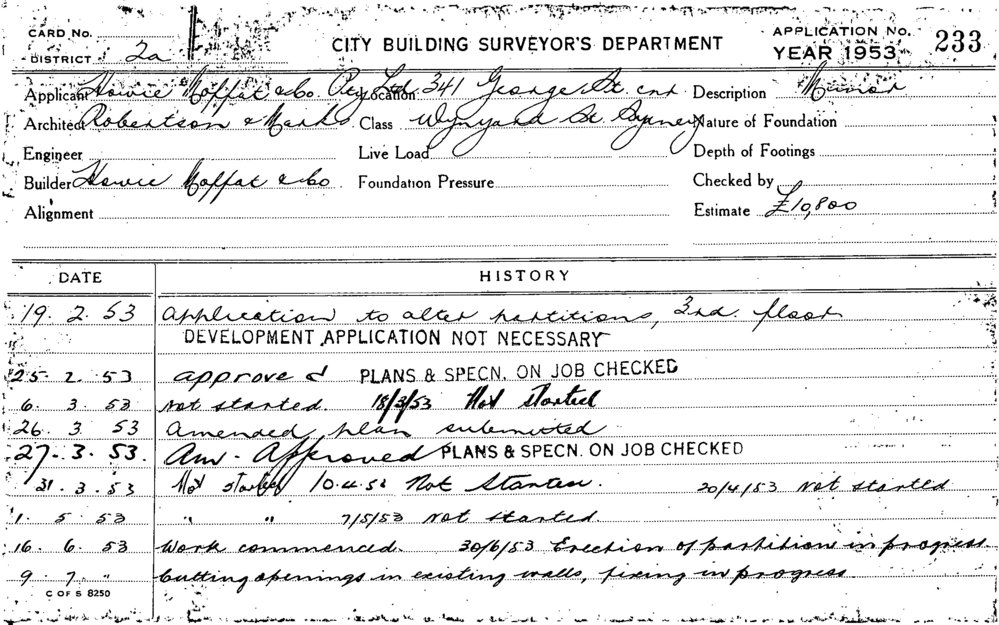 CARD No.
CITY BUILDING SURVEYOR'S DEPARTMENT
APPLICATION No. 233
DISTRICT 2a
YEAR 1953
Applicant Howie Moffat & Co. Pty Ltd Location 341 George St. cnr Description Minor
Architect Robertson & Marks Class Wynyard St. Sydney Nature of Foundation
Engineer Live Load Depth of Footings
Builder Howie Moffat & Co Foundation Pressure Checked by
Alignment Estimate £10,800
DATE HISTORY
19. 2. 53 Application to alter partitions, 3rd. floor
DEVELOPMENT APPLICATION NOT NECESSARY
25. 2. 53 approved PLANS & SPECN. ON JOB CHECKED
6. 3. 53 Not started. 18/3/53 Not started
26. 3. 53 Amended plan submitted
27. 3. 53. Am. Approved PLANS & SPECN. ON JOB CHECKED
31. 3. 53 Not started 10.4.53 Not Started. 20/4/53 Not started
1. 5. 53 " " 7/5/53 Not started
16. 6. 53 Work commenced. 30/6/53 Erection of partition in progress
9. 7. " Cutting openings in existing walls, fixing in progress
C OF S 8250